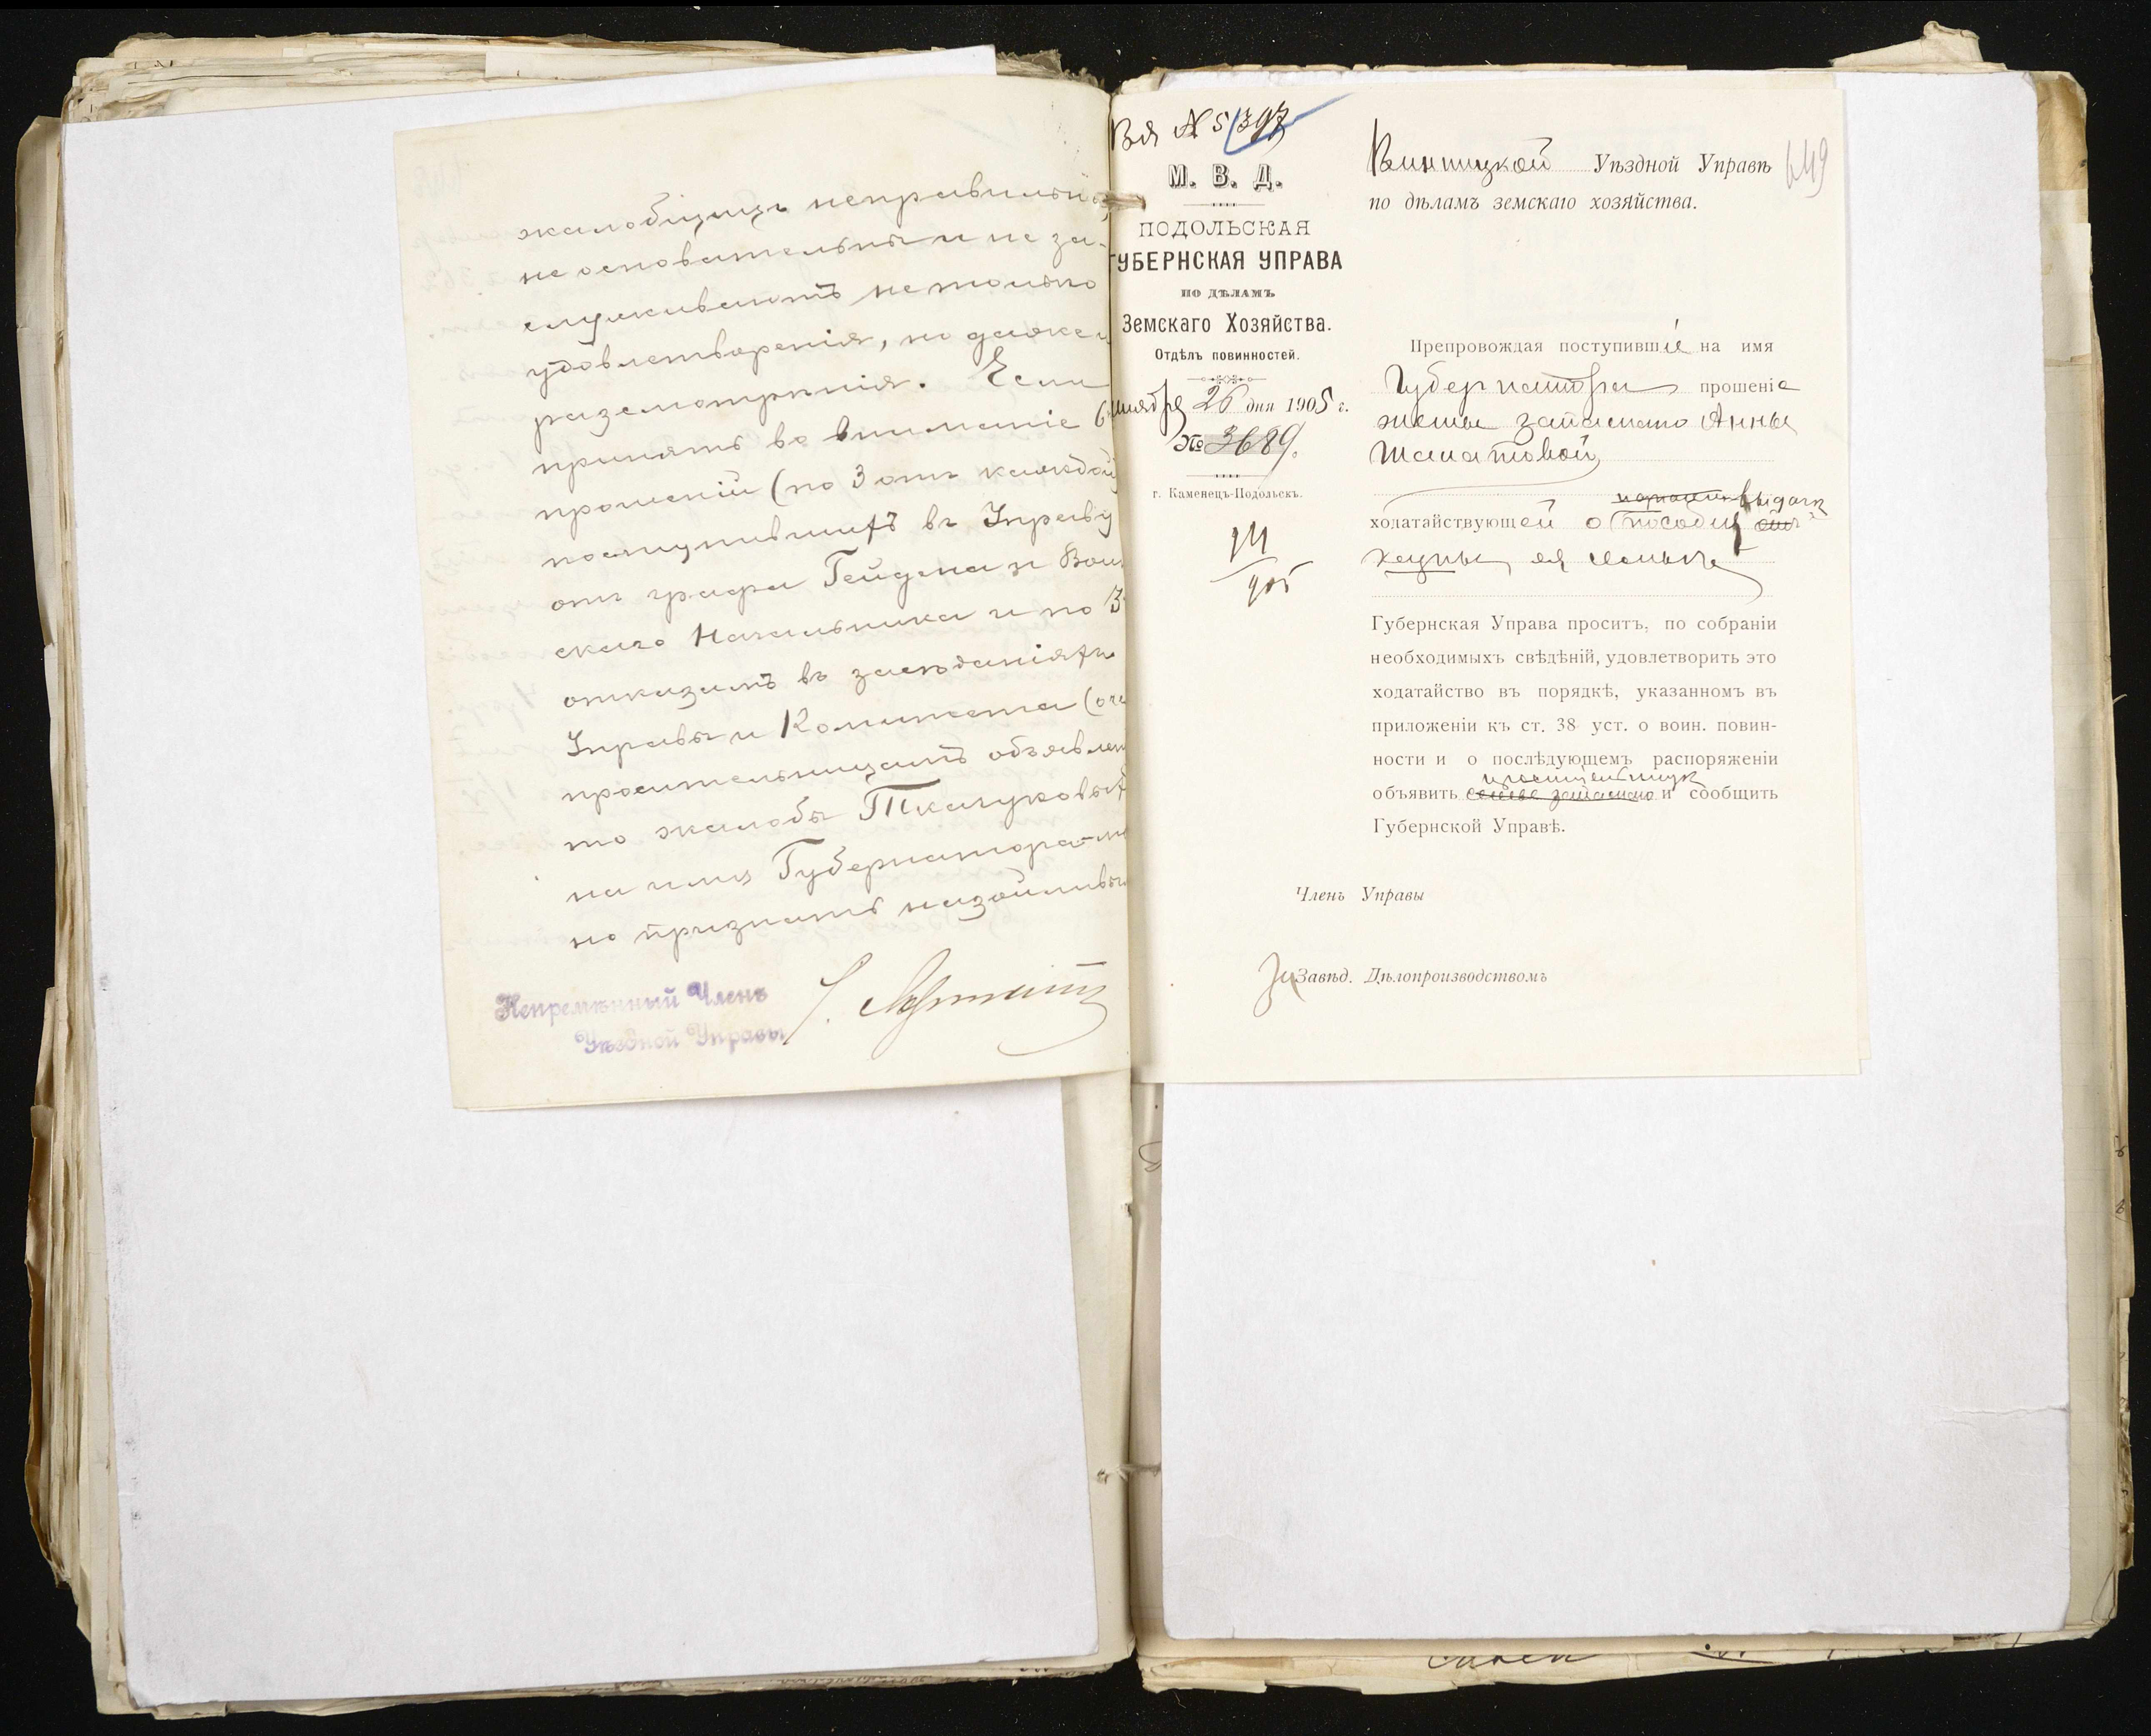 жалобщицъ неправильны,
не основательны и не за-
служиваютъ не только
удовлетворенія, но даже и
разсмотрѣнія. Если
принять во вниманіе 6
прошеній (по 3 отъ каждой)
поступившихъ въ Управу
отъ графа Гейдена и Воин
скаго Начальника и по 3
отказамъ въ засѣданіяхъ
Управы и Комитета (о че
просительницамъ объявлен
то жалобы Ткачуковых
на имя Губернатора
но признать назойливы
Непремѣнный Членъ
Уѣздной Управы
Вх № 5397
М. В. Д.
ПОДОЛЬСКАЯ
ГУБЕРНСКАЯ УПРАВА
ПО ДѢЛАМЪ
Земскаго Хозяйства.
Отдѣлъ повинностей.
26 дня 1905 г.
№ 3689.
г. Каменецъ-Подольскъ.
905
Винницкой Уѣздной Управѣ
649
по дѣламъ земскаго хозяйства.
Препровождая поступившіе на имя
Губернатора прошеніе
жены запаснаго Анны
выдачѣ
ходатайствующей о пособія
ея семьѣ
Губернская Управа проситъ, по собраніи
необходимыхъ свѣдѣній, удовлетворить это
ходатайство въ порядкѣ, указанномъ въ
приложеніи къ ст. 38 уст. о воин. повин-
ности и о послѣдующемъ распоряженіи
просительницѣ
объявить семьѣ запаснаго и сообщить
Губернской Управѣ.
Членъ Управы
За Завѣд. Дѣлопроизводствомъ